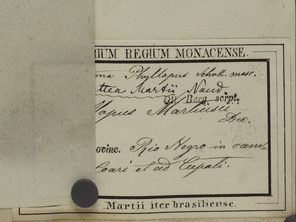 RIUM REGIUM MONACENSE.
ma Phyllopus Schrk. masc.
ttea Martii Naud
Ott. Berg. script.
lopus Martiusii
Dec.
ovinc. Rio Negro in cam
Coari et ad Cupati.
Martii iter brasiliense.